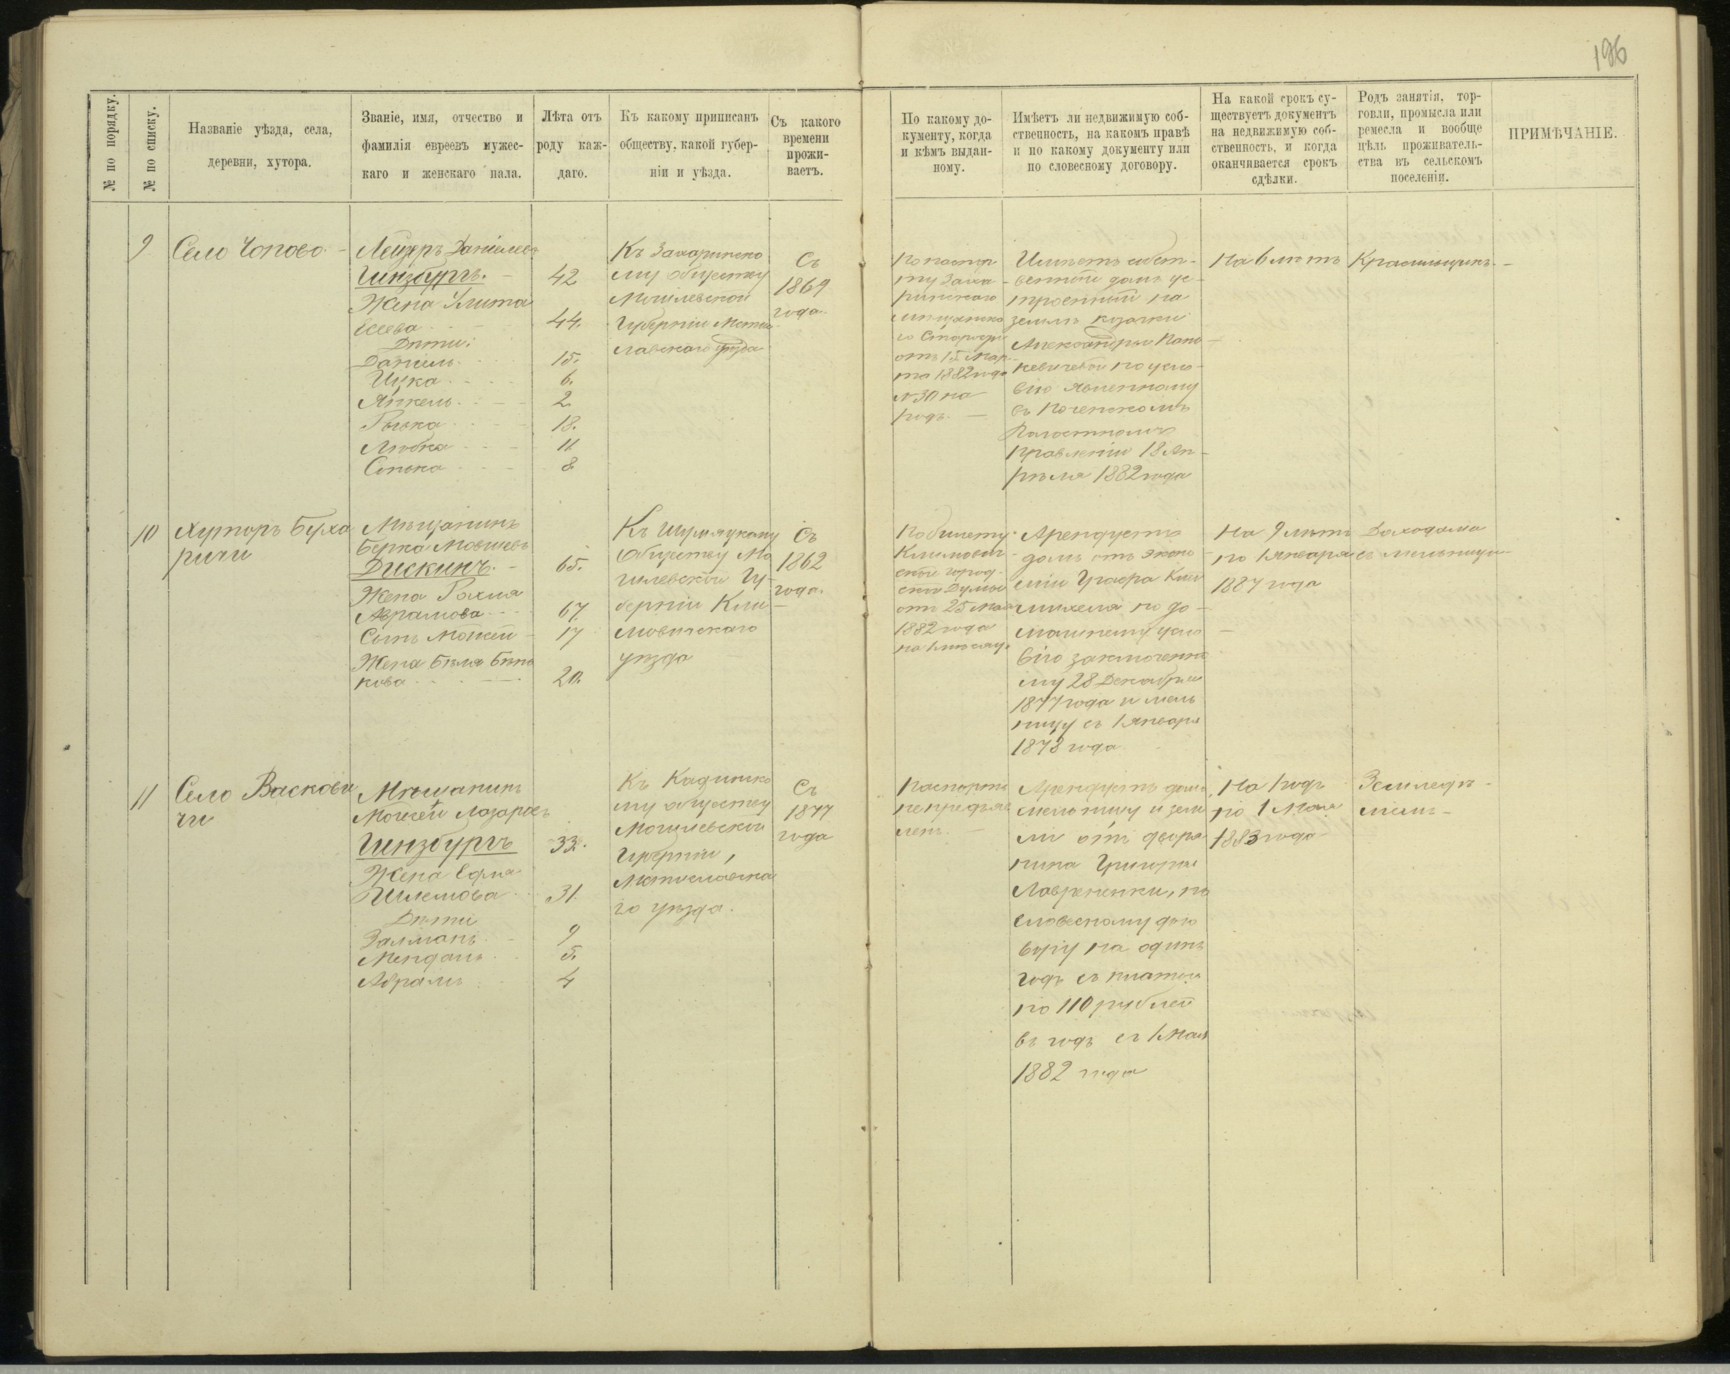 196
№ по порядку.
№ по списку.
Названіе уѣзда, села,
деревни, хутора.
Званіе, имя, отчество и
фамилія евреевъ мужес-
каго и женскаго пала.
Лѣта отъ
роду каж-
даго.
Къ какому приписанъ
обществу, какой губер-
ніи и уѣзда.
Съ какого
времени
прожи-
ваетъ.
По какому до-
кументу, когда
и кѣмъ выдан-
ному.
Имѣетъ ли недвижимую соб-
ственность, на какомъ правѣ
и по какому документу или
по словесному договору.
На какой срокъ су-
ществуетъ документъ
на недвижимую соб-
ственность, и когда
оканчивается срокъ
сдѣлки.
Родъ занятія, тор-
говли, промысла или
ремесла и вообще
цѣль проживатель-
ства въ сельскомъ
поселеніи.
ПРИМѢЧАНІЕ.
9
Село Чопово
Лейзеръ Даніилевъ
Гинзбургъ.
Жена Улита
Дѣти:
Даніилъ
Ицка
Янкель
Рыька
Любка
Сонька
42
44.
15.
6.
2
18.
11
8
Къ Захаринско
му обществу
Могилевской
Губерніи Мсти
славскаго уѣзда
Съ
1869
года
По паспор
ту Заха
ринскаго
мѣщанска
го Старосты
отъ 15 Мар
та 1882 года
№ 30 на
годъ
Имѣетъ собст-
венный домъ ус-
троенный на
землѣ казачки
Александры Пано
кевичевой по усло
вію явленному
въ Почепскомъ
Волостномъ
Правленіи 18 Ап-
рѣля 1882 года
На 6 лѣтъ
Красильщикъ
10
Хуторъ Буха
ричи
Мѣщанинъ
Берка Мовшевъ
Дискинъ.
Жена Рохля
Абрамова
Сынъ Моисей
Жена Бейля Бенъ
кова
65.
67.
17
20.
Къ Шумячкому
Обществу Мо
гилевской Гу-
берніи Кли
мовичскаго
уѣзда
Съ
1862
года.
По билету
Климович
ской город-
ской Думы
отъ 25 Мая
1882 года
Арендуетъ
домъ отъ эконо
міи Графа Клей
нмихеля по до-
машнему усло
вію заключенно
му 28 Декабря
1877 года и мель
ницу съ 1 Января
1878 года
На 9 лѣтъ
по 1 Января
1887 года
Доходами
съ мельницы
11
Село Васкови
чи
Мѣщанинъ
Моисей Лазаревъ
Гинзбургъ
Жена Ефра
Шлемова
Дѣти
Залманъ
Менделъ
Абрамъ
33.
31.
9
5.
4
Къ Кадинско
му обществу
Могилевской
Губерніи,
Мстиславска
го уѣзда.
Съ
1877
года
Паспортъ
не предъяв
ленъ.
Арендуетъ домъ,
мельницу и зем
ли отъ дворя
нина Григорія
Лавриненки, по
словесному дого
вору на одинъ
годъ съ платой
по 110 рублей
въ годъ съ 1 Мая
1882 года
На 1 годъ
по 1 Мая
1883 года
Земледѣ-
ліемъ